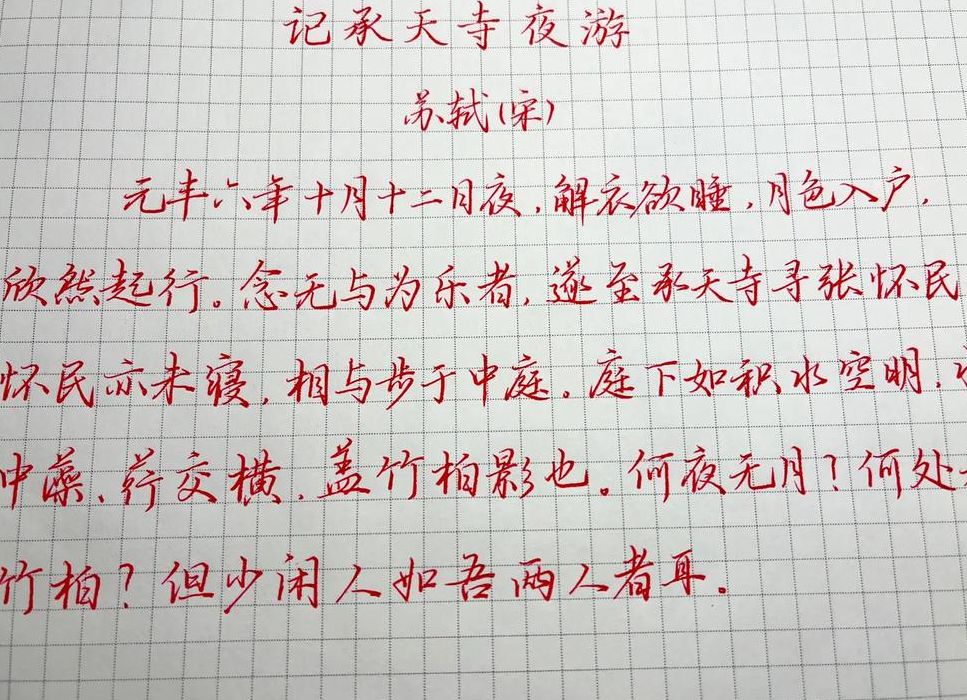 记承天寺夜游
苏轼(宋)
元丰六年十月十二日夜,解衣欲睡,月色入户,
欣然起行。念无与为乐者,遂至承天寺寻张怀民
怀民亦未寝,相与步于中庭。庭下如积水空明,
中藻、荇交横,盖竹柏影也。何夜无月?何处
竹柏?但少闲人如吾两人者耳。